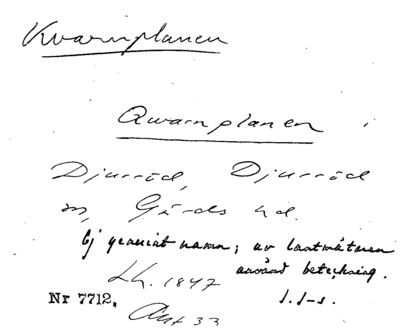 Kvarnplanen
Qwarnplanen i
Djurröd, Djurröd
sn, Gärds hd.
Ej genuint namn; av lantmätaren
använd beteckning.
Lh. 1847 J. J-s.
Nr 7712. Akt 33